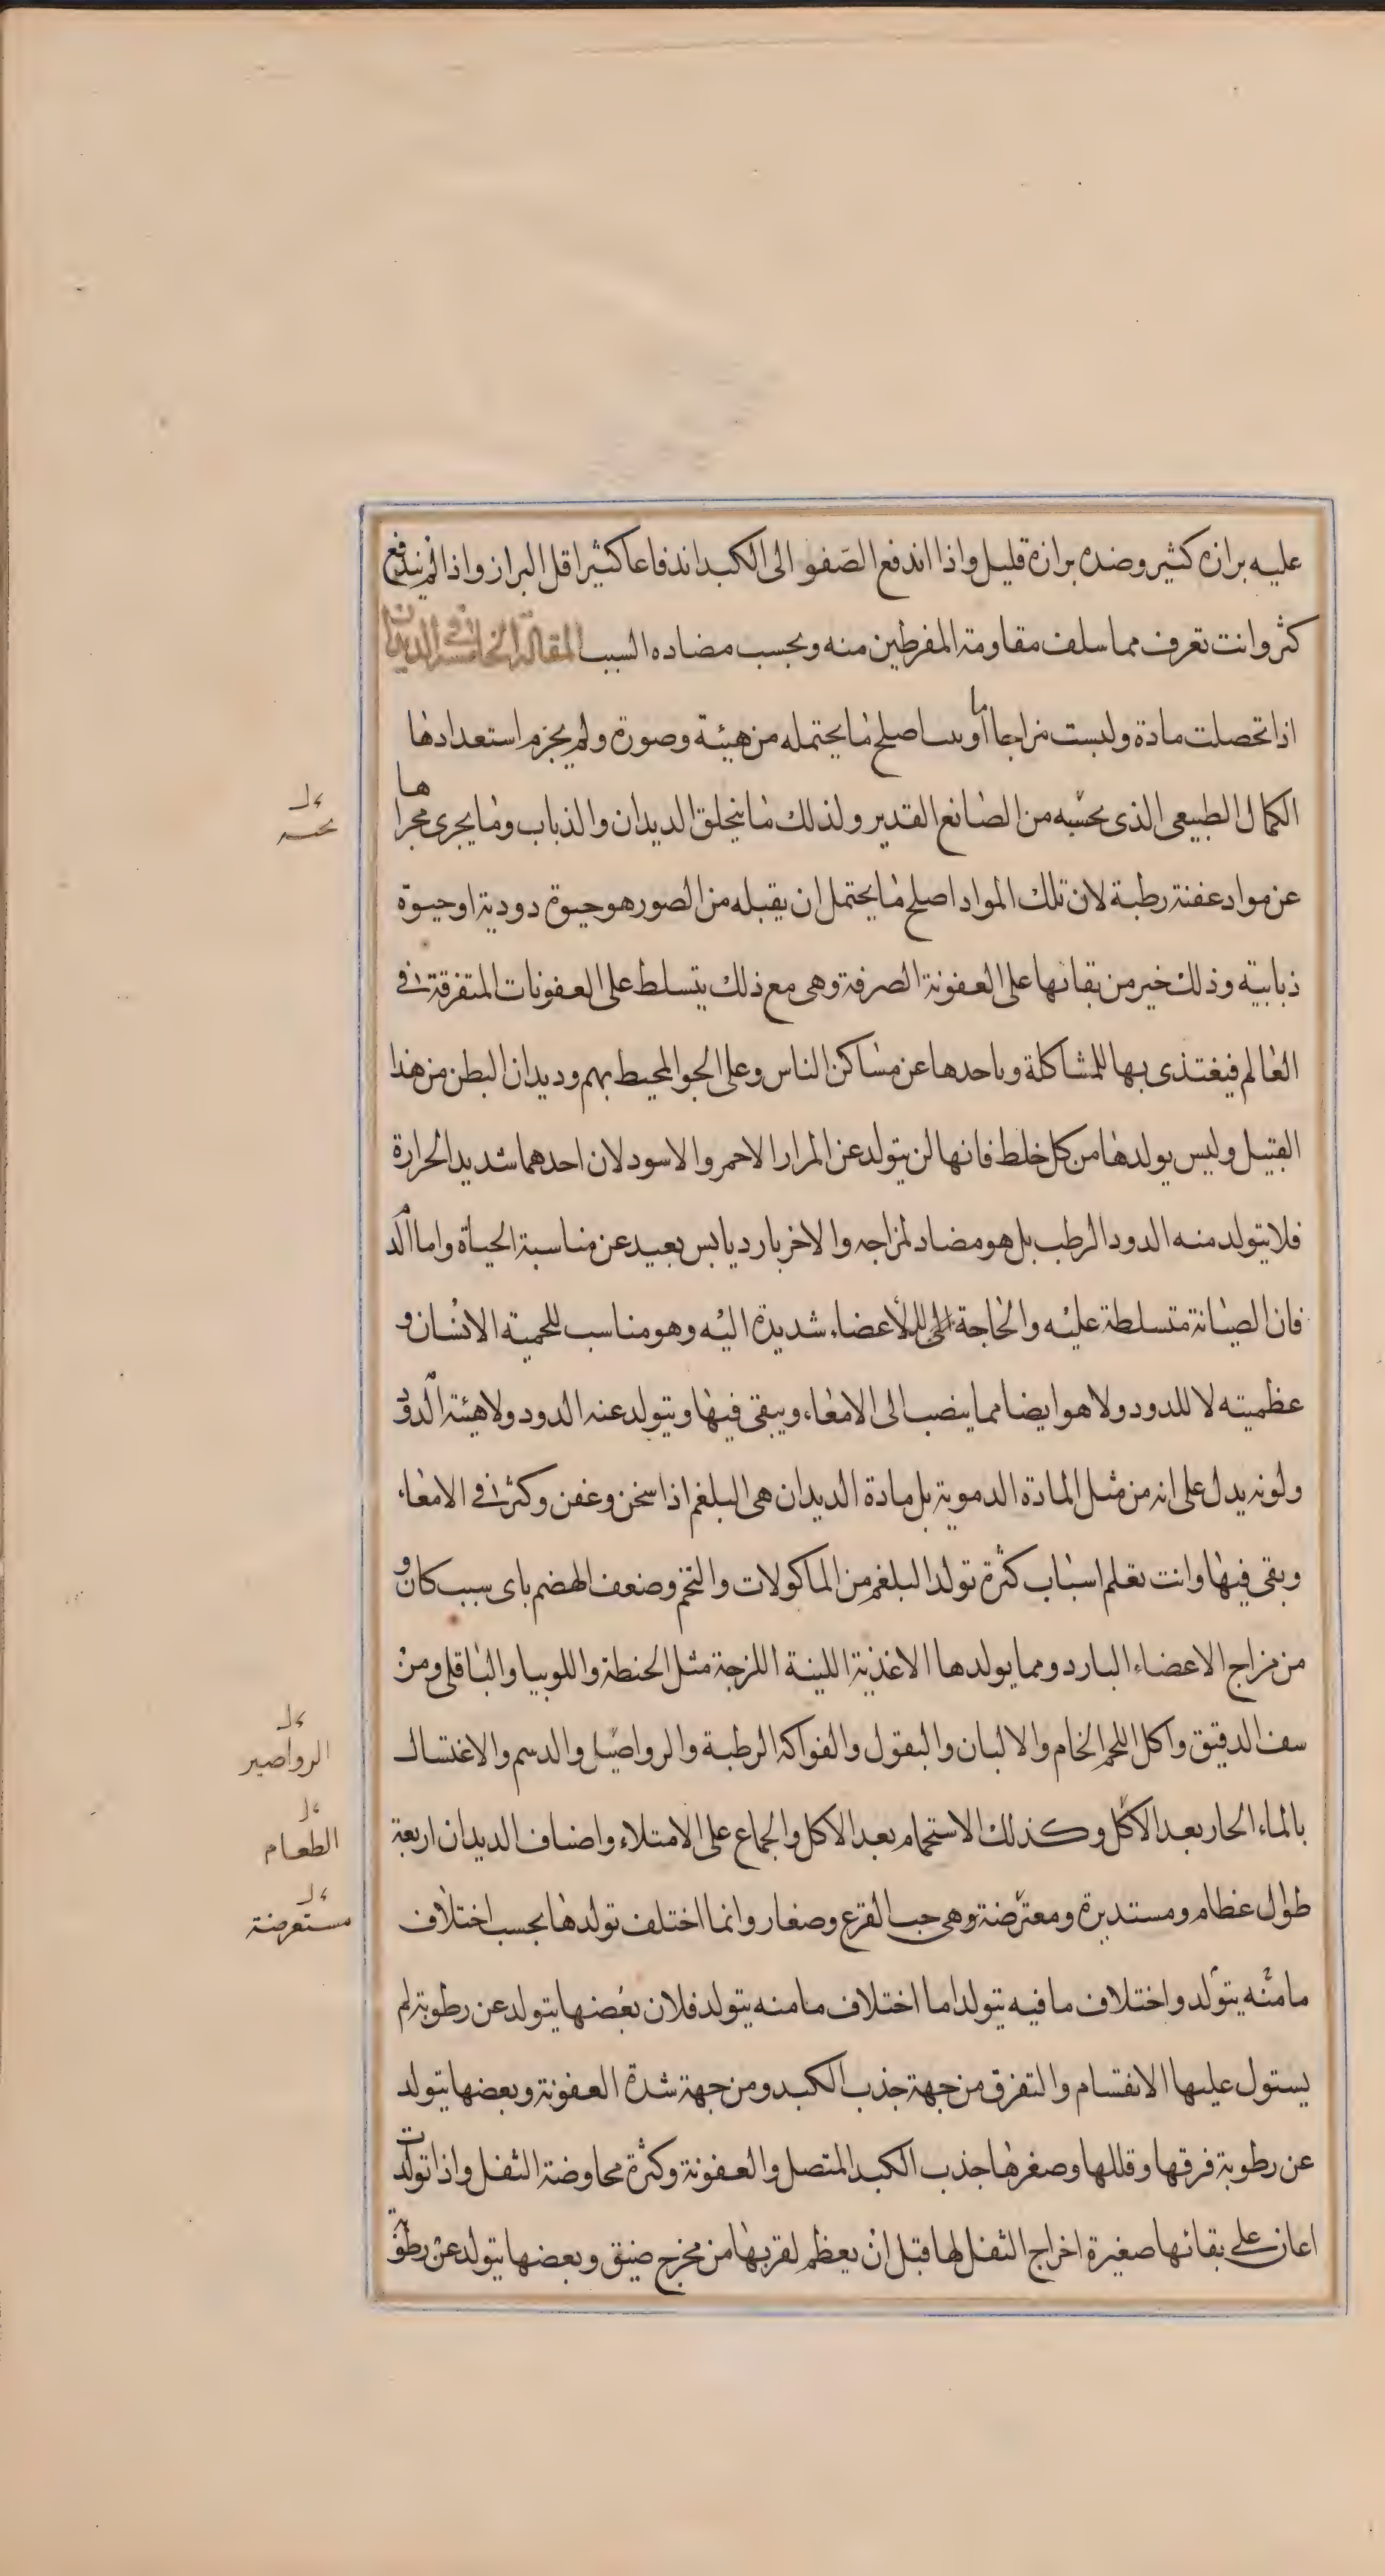 عليه برازه كثير وضده برازه قليل واذا اندفع الصفو الى الكبد اندفاعا كثيرا قل البراز واذا لم يندفع
كثر وانت تعرف مما سلف مقاومة المفرطين منه وبحسب مضاده السبب المقالة الخامسة في الديدان
اذا تحصلت مادة وليست مزاجا ما اصلح ما يحتمله من هيئة وصورة ولم يحرم استعدادها
الكمال الطبيعي الذى يحسبه من الصانع القدير ولذلك ما يتخلق الديدان والذباب وما يجرى مجراها
عن مواد عفنة رطبة لان تلك المواد اصلح ما يحتمل ان يقبله من الصور هو حيوة دودية او حيوة
ذبابية وذلك خير من بقائها على العفونة الصرفة وهى مع ذلك يتسلط على العفونات المتفرقة في
العالم فيغتذى بها للمشاكلة وياخدها عن مساكن الناس وعلى الجو المحيط بهم وديدان البطن من هذا
القبيل وليس يولدها من كل خلط فانها لن يتولد عن المرار الاحمر والاسود لان احدهما شديد الحرارة
فلا يتولد منه الدود الرطب بل هو مضاد لمزاجه والاخر بارد يابس بعيد عن مناسبة الحياة واما الدم
فان الصيانة متسلطة عليه والحاجة للاعضاء شديدة اليه وهو مناسب للحمية الانسان و
عظميته لا للدود ولا هو ايضا مما ينصب الى الامعاء ويبقى فيها ويتولد عنه الدود ولا هيئة الدود
ولونه يدل على انه من مثل المادة الدموية بل مادة الديدان هى البلغم اذا سخن وعفن وكثر في الامعاء
وبقى فيها وانت تعلم اسباب كثرة تولد البلغم من الماكولات والتخم وضعف الهضم باى سبب كان و
من مزاج الاعضاء البارد ومما يولدها الاغذية اللينة اللزجة مثل الحنطة واللوبيا والباقلى ومن
سف الدقيق واكل اللحم الخام والالبان والبقول والفواكه الرطبة والرواصيل والدسم والاغتسال
بالماء الحار بعد الاكل وكذلك الاستحمام بعد الاكل والجماع على الامتلاء واصناف الديدان اربعة
طوال عظام ومستديرة ومعترضة وهى حب القرع وصغار وانما اختلف تولدها بحسب اختلاف
ما منه يتولد واختلاف ما فيه يتولد اما اختلاف ما منه يتولد فلان بعضها يتولد عن رطوبة لم
يستول عليها الانقسام والتفرق من جهة جذب الكبد ومن جهة شدة العفونة وبعضها يتولد
عن رطوبة فرقها وقللها وصغرها جذب الكبد المتصل والعفونة وكثرة مخاوضة الثفل واذا تولدت
اعان على بقائها صغيرة اخراج الثفل لها قبل ان يعظم لقربها من مخرج ضيق وبعضها يتولد عن رطوبة
الرواصير
الطعام
مستعرضة